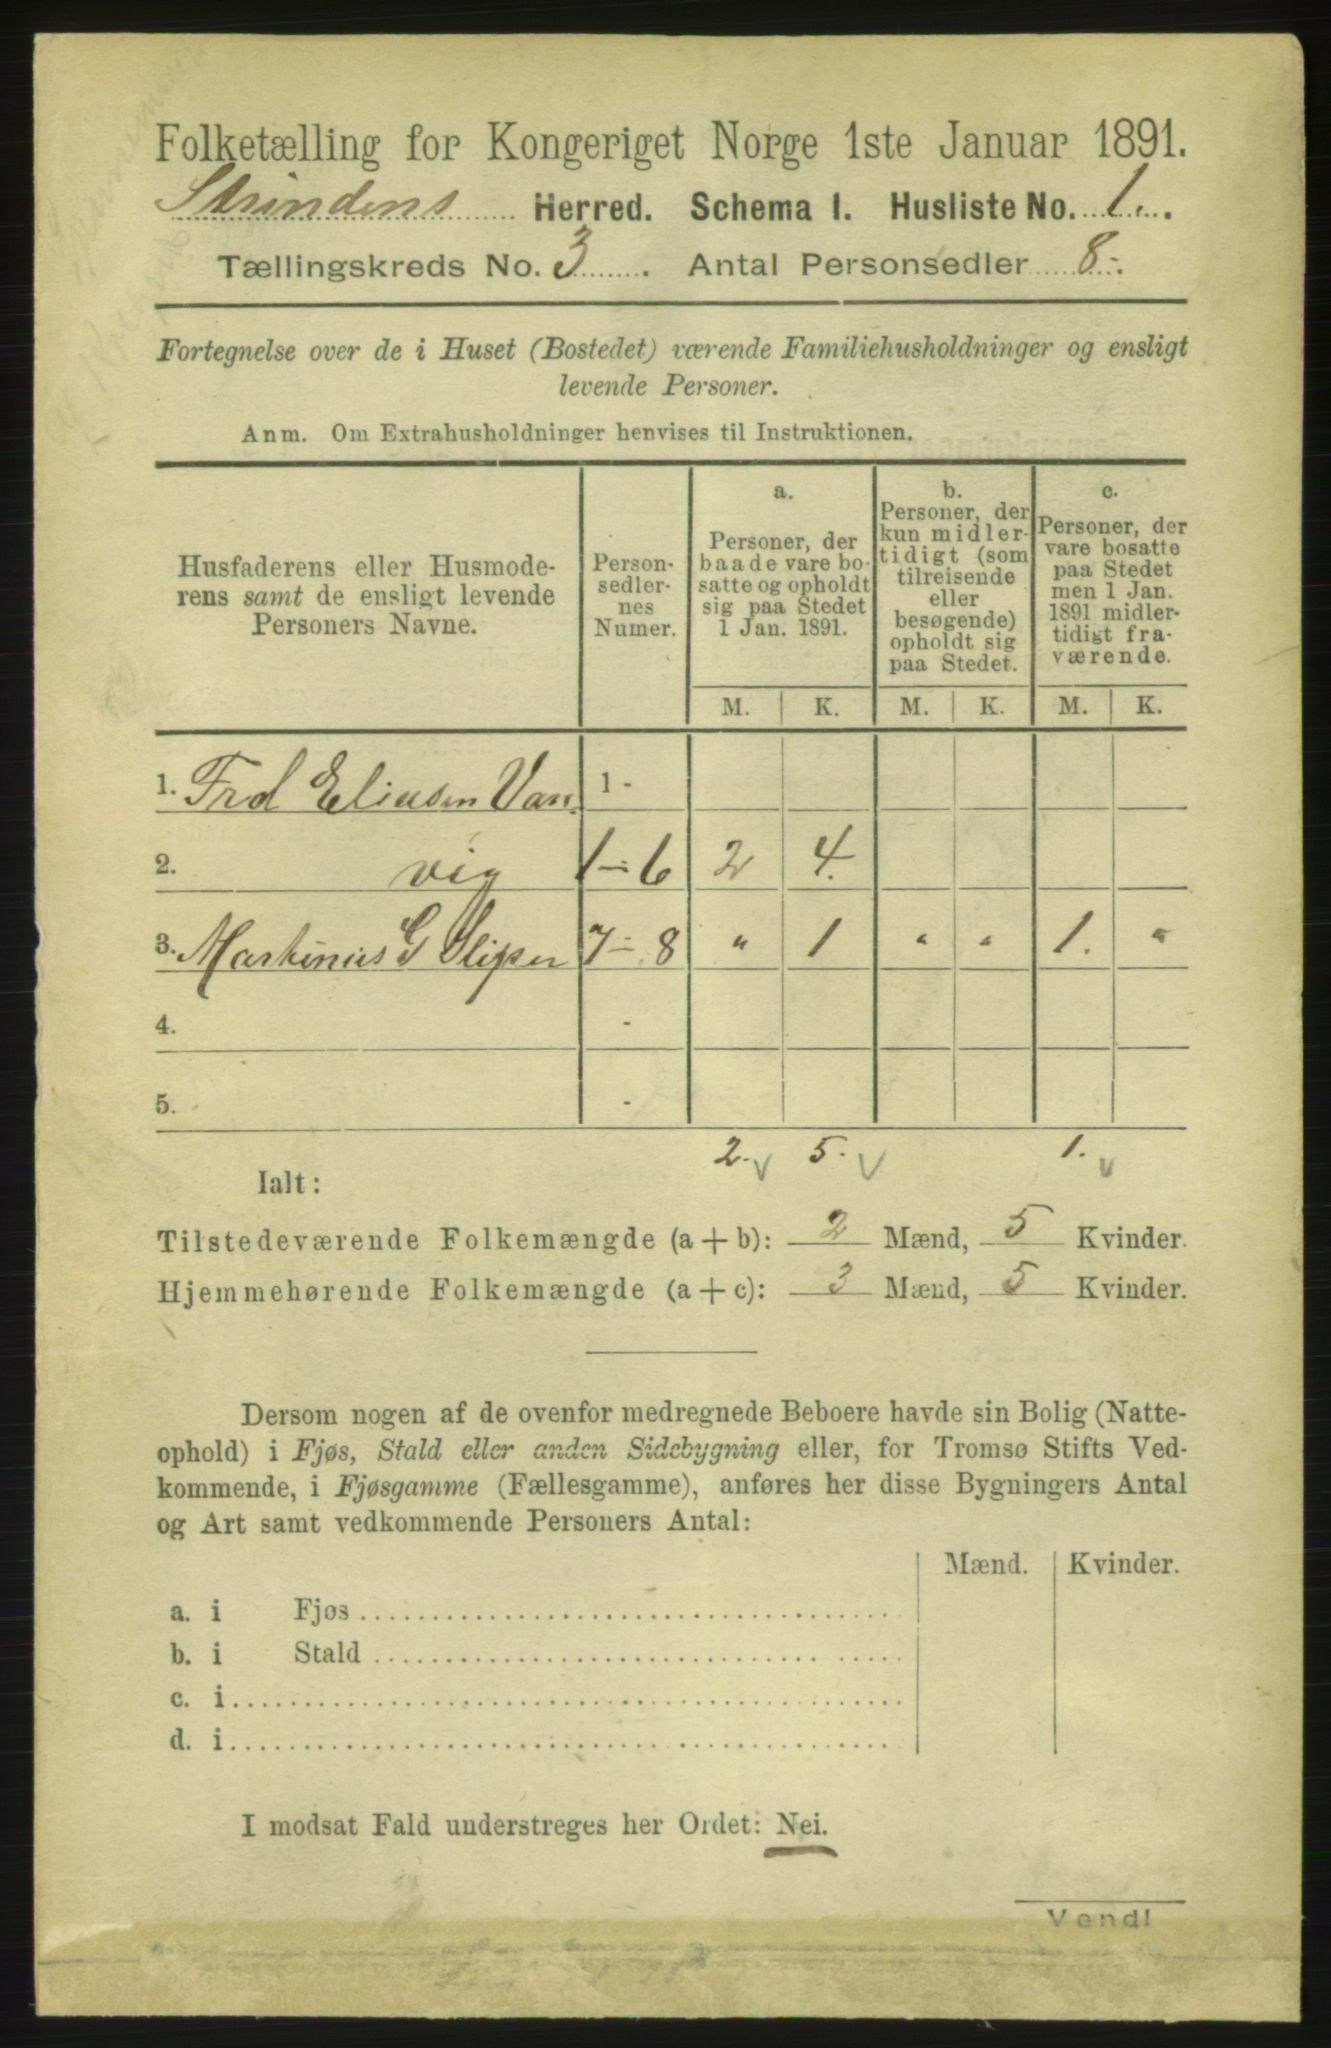 Folketælling for Kongeriget Norge 1ste Januar 1891.
Strindens Herred. Schema I. Husliste No. 1.
Tællingskreds No. 3. Antal Personsedler 8.
Fortegnelse over de i Huset (Bostedet) værende Familiehusholdninger og ensligt
levende Personer.
Anm. Om Extrahusholdninger henvises til Instruktionen.
Husfaderens eller Husmode-
rens samt de ensligt levende
Personers Navne.
Person-
sedler-
nes
Numer.
a.
Personer, der
baade vare bo-
satte og opholdt
sig paa Stedet
1 Jan. 1891.
b.
Personer, der
kun midler-
tidigt (som
tilreisende
eller
besøgende)
opholdt sig
paa Stedet.
c.
Personer, der
vare bosatte
paa Stedet
men 1 Jan.
1891 midler-
tidigt fra-
værende.
M. K. M. K. M. K.
1. Frd Eliasen Van 1 -
2. vig 1 - 6 2 4.
3. Martinius G Sliper 7 - 8 " 1 " " 1. "
4. -
5. -
2. v 5. v 1. v
Ialt:
Tilstedeværende Folkemængde (a + b): 2 Mænd, 5 Kvinder.
Hjemmehørende Folkemængde (a + c): 3 Mænd, 5 Kvinder.
Dersom nogen af de ovenfor medregnede Beboere havde sin Bolig (Natte-
ophold) i Fjøs, Stald eller anden Sidebygning eller, for Tromsø Stifts Ved-
kommende, i Fjøsgamme (Fællesgamme), anføres her disse Bygningers Antal
og Art samt vedkommende Personers Antal:
Mænd. Kvinder.
a. i Fjøs
b. i Stald
c. i
d. i
I modsat Fald understreges her Ordet: Nei.
Vend!